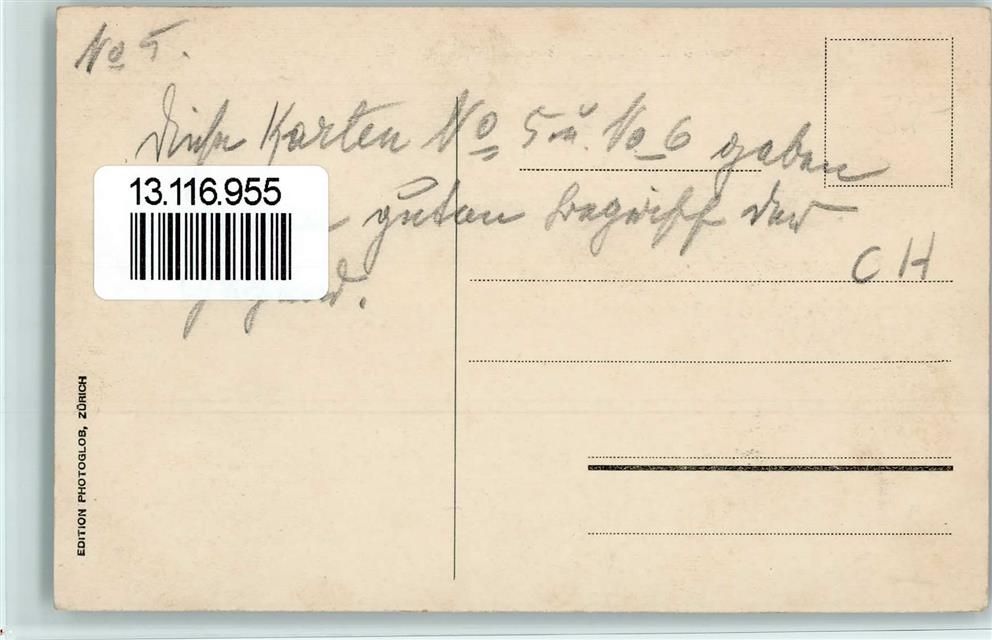 No 5.
Diese Karten No 5 u. No 6 geben
guten Begriff der
C H
13.116.955
EDITION PHOTOGLOB, ZÜRICH